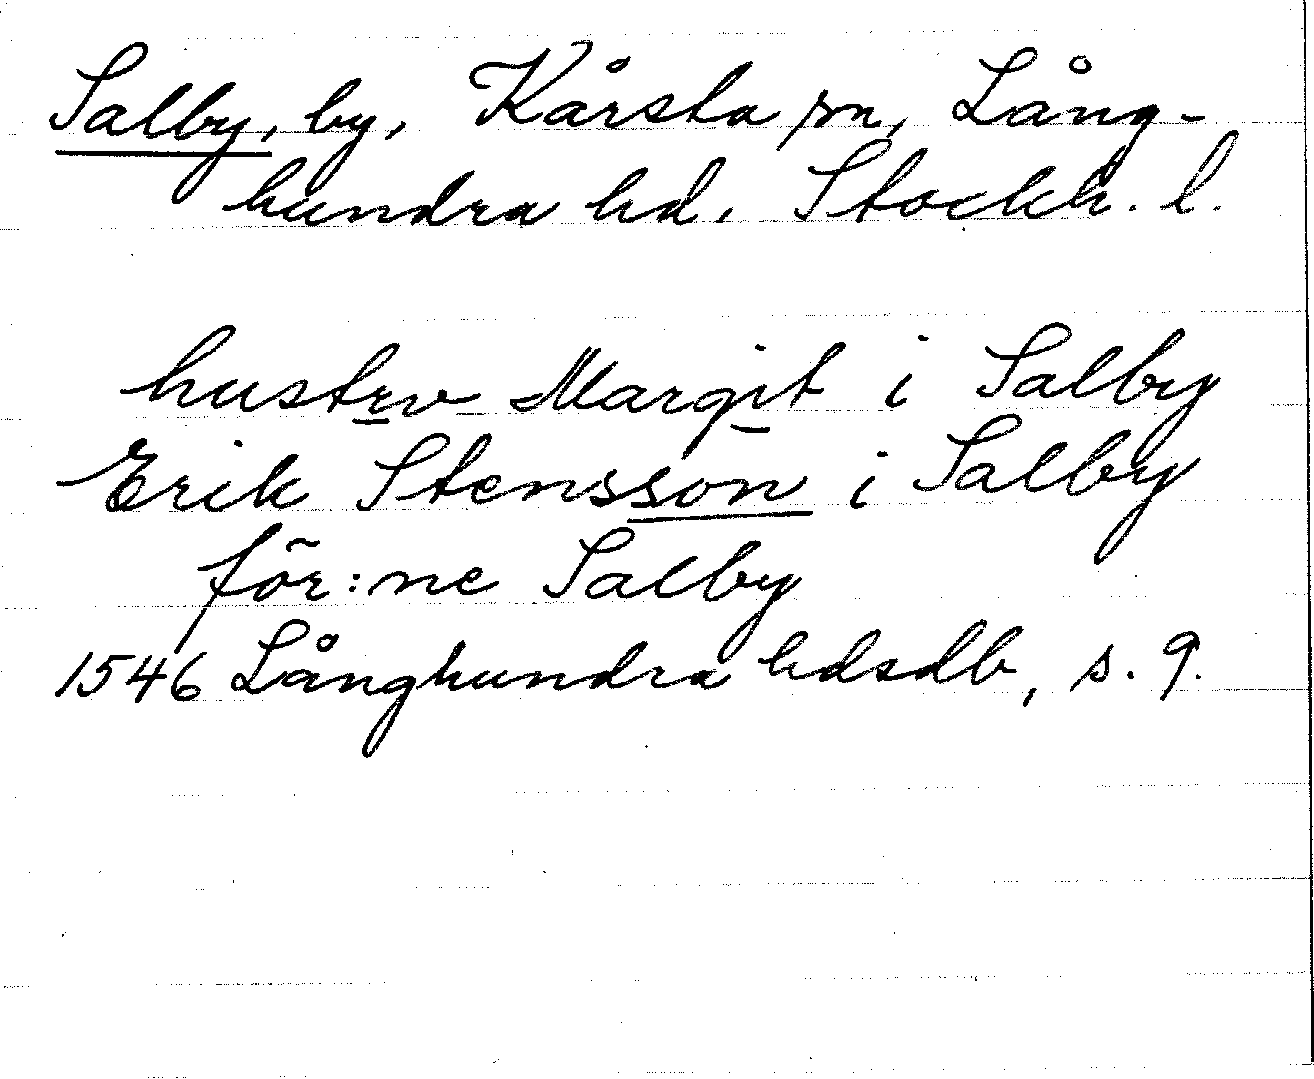 Salby, by, Kårsta sn, Lång-
hundra hd. Stockh. l.
hustrv Margit i Salby
Erik Stensson i Salby
för:ne Salby
1546 Långhundra hdsdb, s. 9.